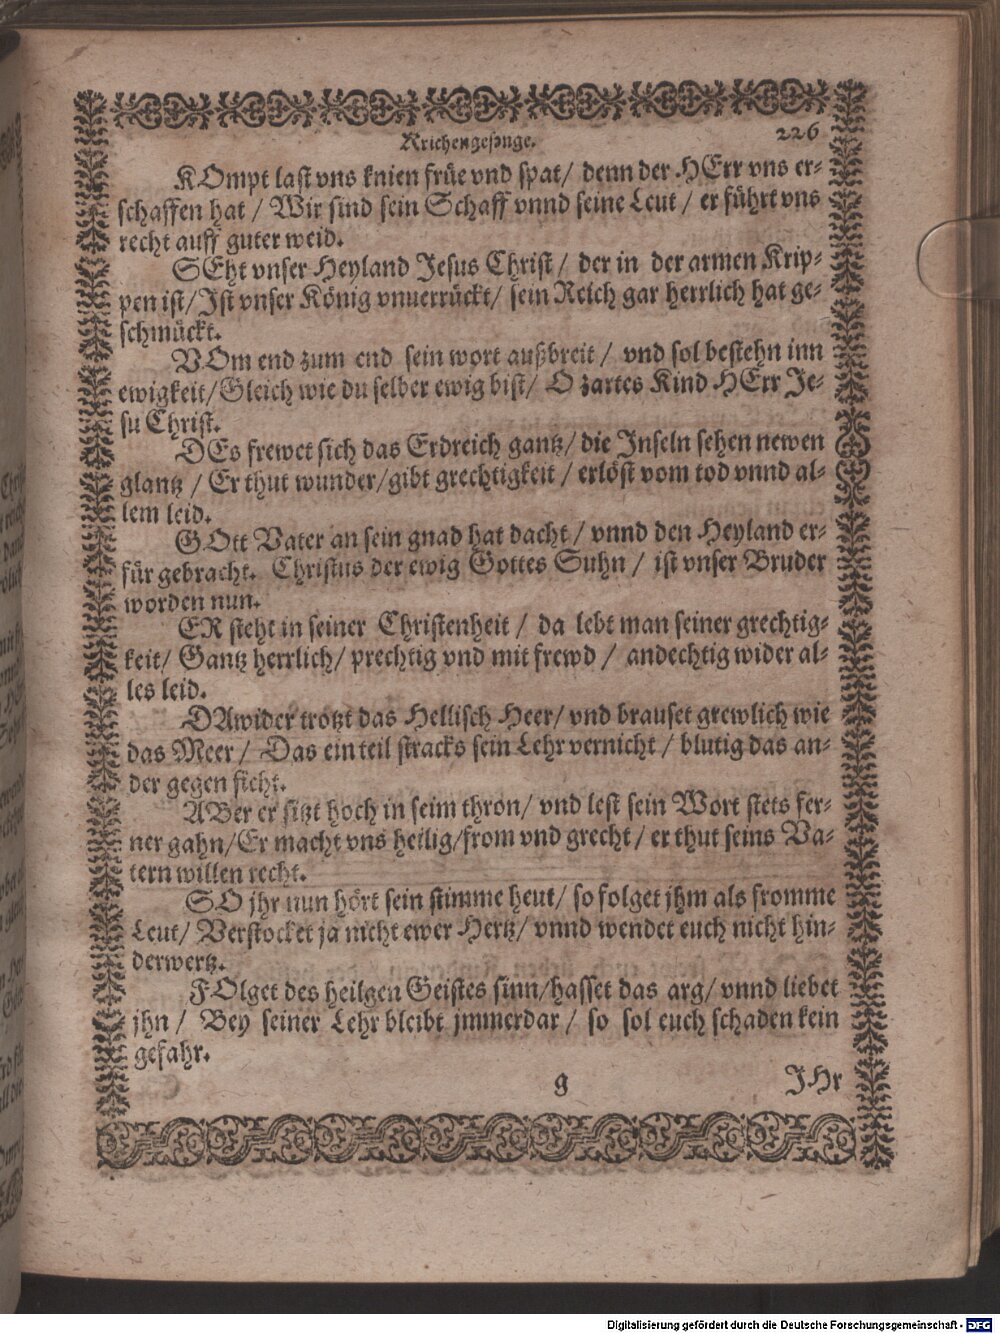 Krichengesenge. 226
KOmpt last vns knien früe vnd spat/ denn der HErr vns er-
schaffen hat / Wir sind sein Schaff vnnd seine Leut / er führt vns
recht auff guter weid.
SEht vnser Heyland Jesus Christ/ der in der armen Krip-
pen ist/Ist vnser König vnuerrückt/ sein Reich gar herrlich hat ge-
schmückt.
VOm end zum end sein wort außbreit / vnd sol bestehn inn
ewigkeit/Gleich wie du selber ewig bist/ O zartes Kind HErr Je-
su Christ.
DEs frewet sich das Erdreich gantz/ die Inseln sehen newen
glantz / Er thut wunder/gibt grechtigkeit / erlöst vom tod vnnd al-
lem leid.
GOtt Vater an sein gnad hat dacht/ vnnd den Heyland er-
für gebracht. Christus der ewig Gottes Suhn / ist vnser Bruder
worden nun.
ER steht in seiner Christenheit / da lebt man seiner grechtig-
keit/ Gantz herrlich/ prechtig vnd mit frewd / andechtig wider al-
les leid.
DAwider trotzt das Hellisch Heer/ vnd brauset grewlich wie
das Meer / Das ein teil stracks sein Lehr vernicht / blutig das an-
der gegen ficht.
ABer er sitzt hoch in seim thron/ vnd lest sein Wort stets fer-
ner gahn/Er macht vns heilig/from vnd grecht/ er thut seins Va-
tern willen recht.
SO jhr nun hört sein stimme heut/ so folget jhm als fromme
Leut/ Verstocket ja nicht ewer Hertz/ vnnd wendet euch nicht hin-
derwertz.
FOlget des heilgen Geistes sinn/hasset das arg/ vnnd liebet
jhn / Bey seiner Lehr bleibt jmmerdar / so sol euch schaden kein
gefahr.
g JHr
Digitalisierung gefördert durch die Deutsche Forschungsgemeinschaft - DFG